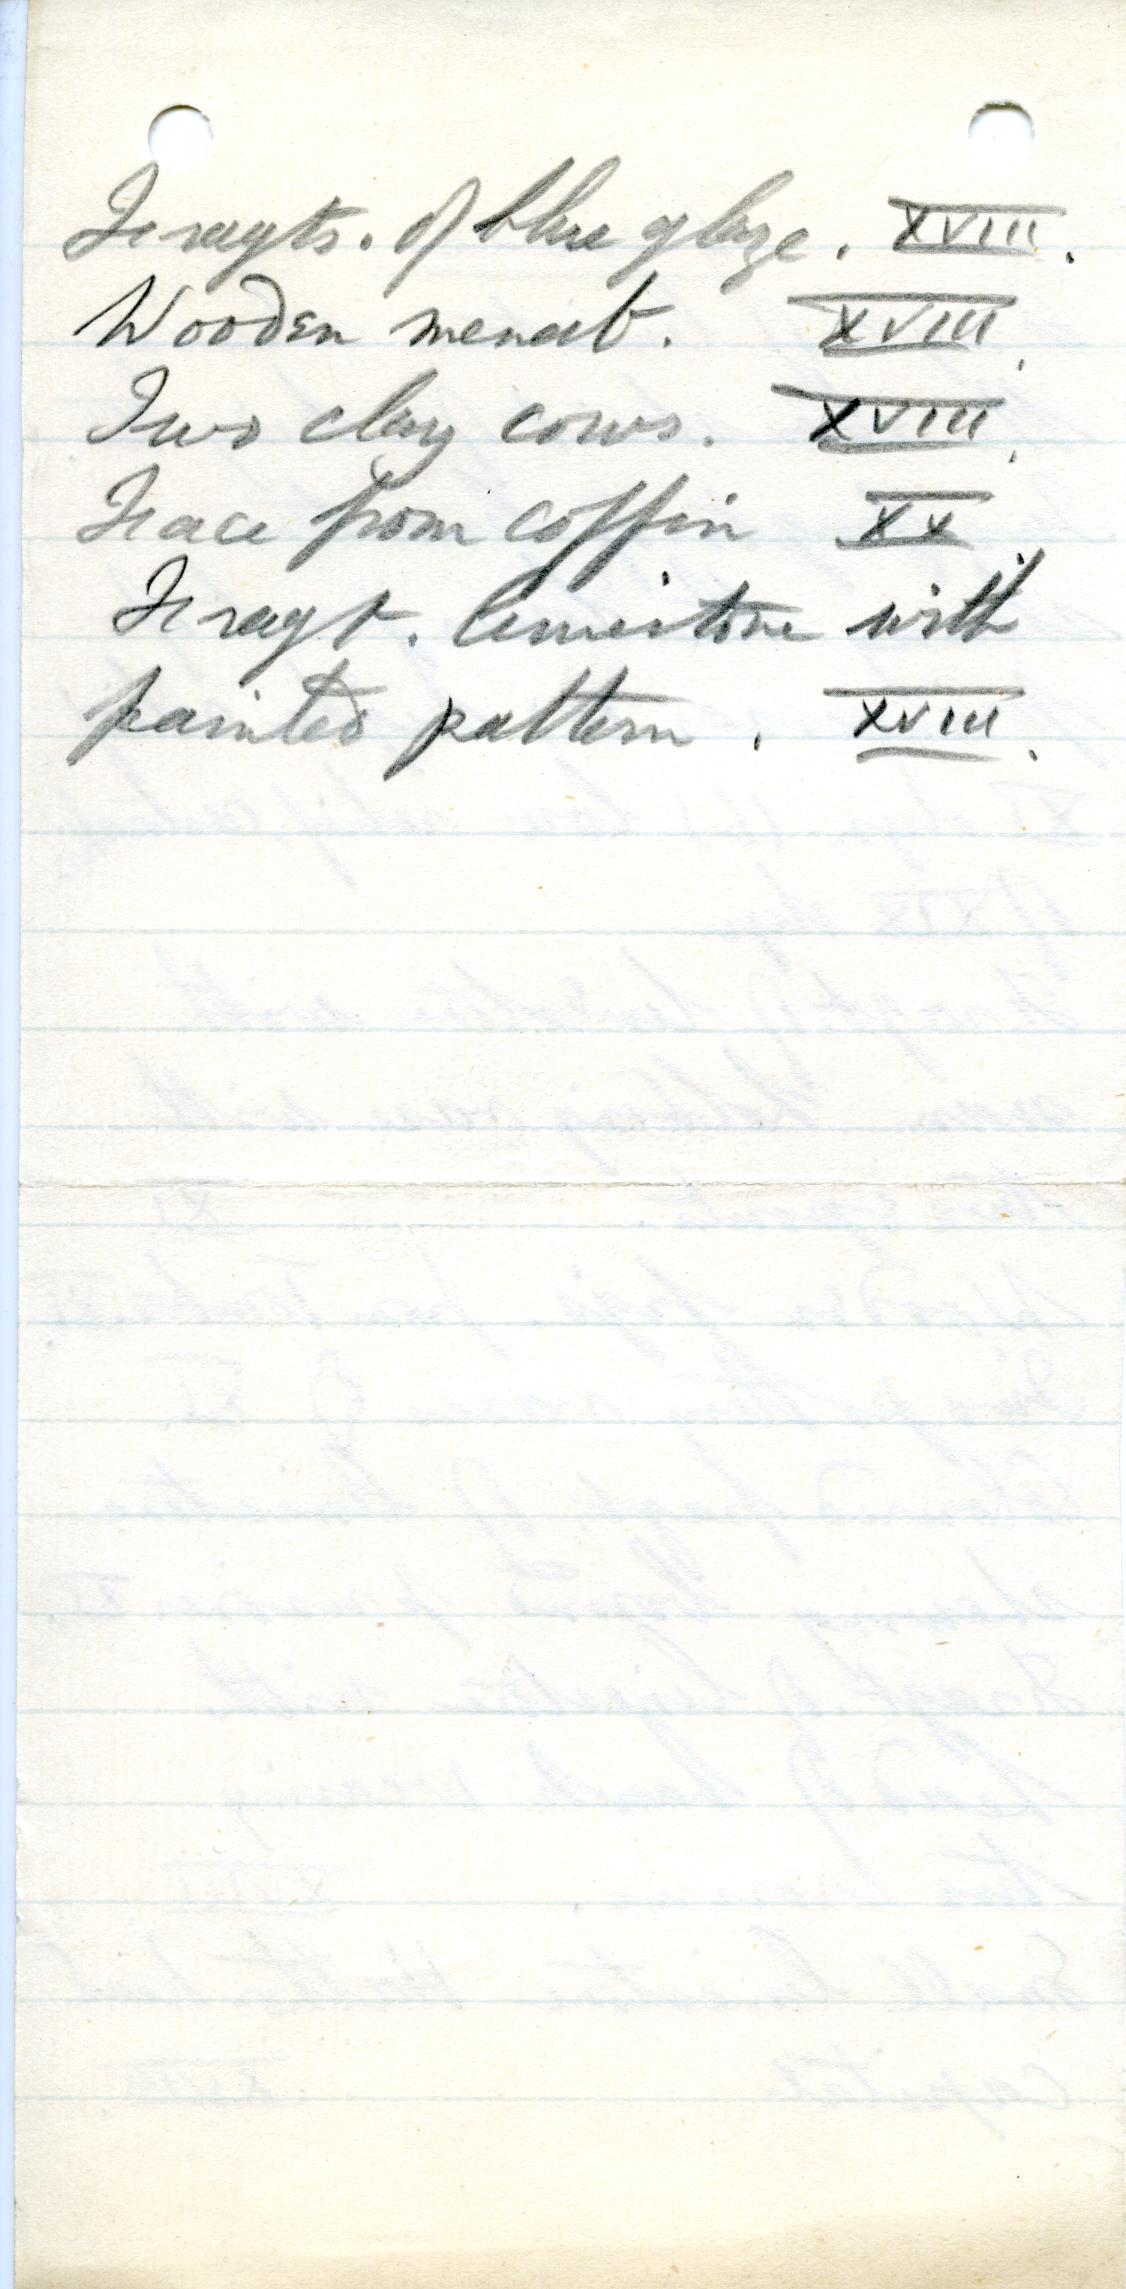 Fragts. of blue glaze. XVIII.
Wooden menat. XVIII.
Two clay cows. XVIII.
Face from coffin XX
Fragt. limestone with
painted pattern. XVIII.